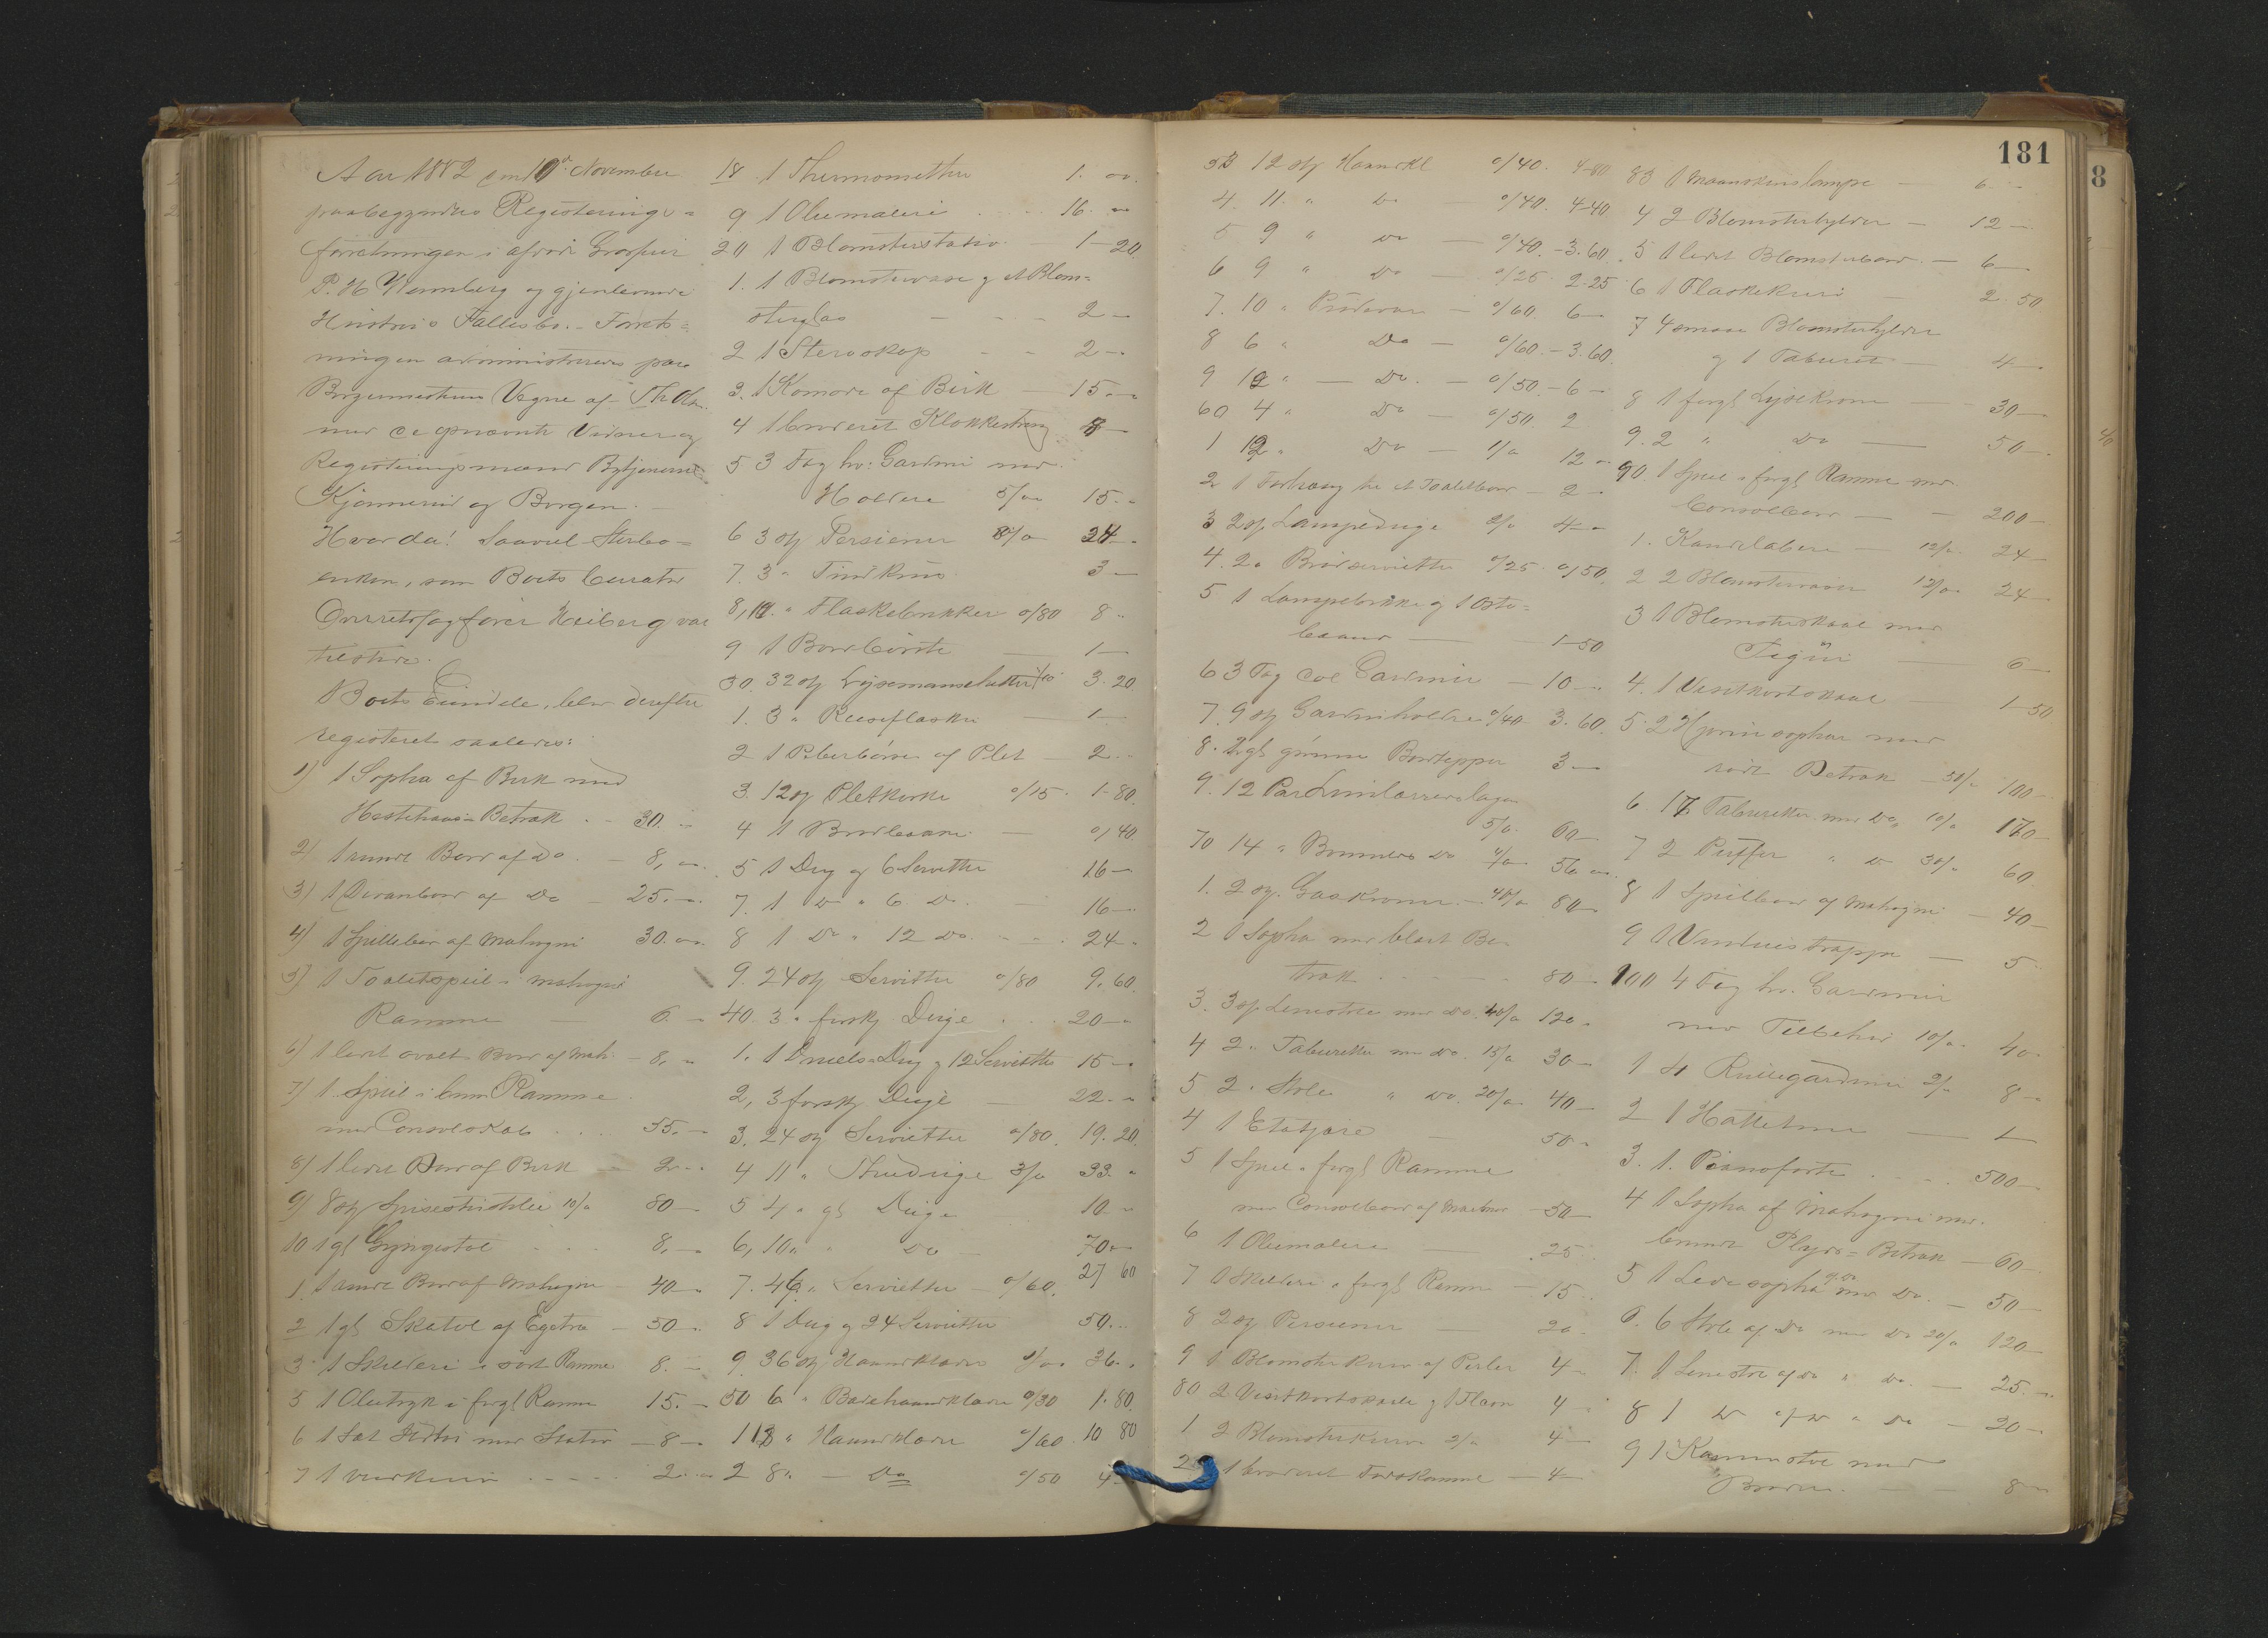 Aar 1882 den 10de November
paabegyndtes Registerings=
forretningen i afdøde Grosserer
P. H Wennberg og gjenlevende
Hustrus Fællesbo. - Forret=
ningen administreredes paa
Borgermesterens Vegne af
med de opnævnte Vidner og
Registeringsmænd Bytjenerne
og Borgen.
Hvorda! Saavel Sterbo=
enken, som Boets Curator
Overretssagfører Heiberg var
tilstede.
Boets Eiendele, blev derefter
registeret saaledes:
1) 1 Sopha af Birk med
Hestehaars-Betræk . - 30. -
2) 1 rundt Bord af Do. - 8, -
3) 1 Divanbord af Do - 25. -
4) 1 Spillebord af Mahogni 30. -
5) 1 Toiletspeil i mahogni
Ramme - 6. -
6) 1 lidet ovalt Bord af Mah. - 8, -
7) 1 Speil i brun Ramme
med Consolskab . . . 55. -
8) 1 lidet Bord af Birk - 2 -
9) 8 st Spisestuestole 10/- 80 -
10 1 gl Gyngestol . . 8, -
1. 1 rundt Bord af Mahogni 40 -
2 1 gl Skatol af Egetræ - 50 -
3 1 Skilderi i sort Ramme 8. -
5 1 Olietryk i forgl Ramme 15. -
6 1 Sæt Ildtøi med Stativ - 8 -
7 1 Vedkurv . . . . 2 -
18 1 Thermometer 1. -
9 1 Oliemaleri . . . 16. -
20 1 Blomsterstativ 1 - 20
1. 1 Blomstervase og et Blom=
sterglas - - 2 -
2 1 Steroskop - - 2 -
3. 1 Komode af Birk 15. -
4 1 broderet Klokkestreng 8 -
5 3 Fag hv: Gardiner med
Holdere 5/- 15. -
6 3 st Persienner 8/- 24 -
7. 3 " 3 -
8, 10. " Flaskebrikker o/80 8 -
9 1 Bordbörste - 1 -
30. 32 st Lysemanschetter /10 3. 20
1. 3 " Reiseflasker - 1 -
2 1 Peberbösse af Plet - 2 -
3. 12 st Pletkorke o/15. 1-80.
4 1 - o/40
5 1 Dug og 6 Servietter 16 -
7. 1 Do " 6 Do. - 16 -
8 1 Do " 12 Do. - 24 -
9. 24 st Servietter o/80 9. 60.
40. 3 " forskj Duge . . . 20 -
1. 1 Dug og 12 Servietter 15 -
2, 3 forskj. Duge - 22. -
3. 24 st Servietter o/80. 19. 20.
4 11 " Theduge 3/- 33. -
5 4 " gl Duge 10. -
6, 10 " " Do 70 -
7. 46 " Servietter - o/60. 27 60
8 1 Dug og 24 Servietter 50. -
9. 36 st Haandklæder 1/- 36. -
50 6 " Badehaandklæder o/30 1. 80.
1 18 " Haandklæder o/60 10 80
2 8 " - Do o/50 4 -
181
53 12 st Haandkl o/40. 4-80
4. 11. " Do - o/40. 4-40
5 9 " Do - o/40. - 3. 60.
6 9 " Do - o/25. 2-25
7. 10 " Pudevar - o/60. 6 -
8 6 " Do - o/60. - 3. 60.
9 12 " - Do. - o/50. - 6 -
60 4 " Do - o/50. 2
1 12 " Do - 1/- 12 -
2 1 Forhæng til et Toiletbord - 2 -
3 2 st Lampeduge 2/- 4 -
4. 2 " Brödservietter o/25. o/50.
5 1 Lampebrikke og 1 Oste=
- 1-50
6 3 Fag col Gardiner - 10 -
7. 9 st Gardinholdere o/40 3. 60.
8. 2 gl grönne Bordtepper 3 -
9. 12 Par Linlærredslagen
5/-. 60 -
70 14 " Bomulds Do 4/- 56 -
1. 2 st. Gaskroner - 40/- 80 -
2 1 Sopha med blaat Be-
træk . - - 80 -
3. 3 st Lenestole med Do. 40/- 120 -
4 2 " Taburetter med Do. 15/- 30 -
5 2 " Stole " Do. 20/- 40 -
4 1 Etagere - 50 -
5 1 Speil i forgl Ramme
med Consolbord af Marmor - 50 -
6 1 Oliemaleri - 25 -
7 1 Skilderi i forgl Ramme - 15 -
8 2 st Persienner - 20 -
9 1 Blomsterkurv af Perler 4 -
80 2 Visitkortskaale og 1 4 -
1 2 Blomsterkurve 2/- 4 -
2 1 broderet Fodskammel - 4 -
83 1 Maaneskinslampe - 6 -
4 2 Blomsterhylder - 12 -
5 1 lidet Blomsterbord - 6 -
6 1 Flaskekurv - 2. 50
7 4 smaa Blomsterhylder
og 1 Taburet - 4 -
8 1 forgl Lysekrone - 30 -
9. 2 " Do - 50 -
90. 1 Speil i forgl Ramme med
Consolbord - - 200 -
1. Kandelabere - 12/- 24 -
2 2 Blomstervaser 12/- 24 -
3 1 Blomsterskaal med
Figur - 6 -
4. 1 Visitkortskaal - 1-50
5. 2 Hjørnesophaer med
rödt Betræk - 50/- 100 -
6. 17 Taburetter med Do. 10/- 170 -
7 2 Puffer " Do 30/- 60
8 1 Spillebord af Mahogni - 40 -
9 1 Vinduestrappe - 5
100 4 Fag hv. Gardiner
med Tilbehør 10/- 40 -
1 4 Rullegardiner 2/- 8 -
2 1 - 1 -
3. 1. Pianoforte . . . . 500 -
4 1 Sopha af Mahogni med
brunt Plyds=Betræk - 60 -
5 1 Sopha af Do med Do. - 50 -
6. 6 Stole af Do med Do 20/- 120 -
7. 1 Lenestol af Do " Do. - 25. -
8 1 Do af Do " Do - 20 -
9 1 med
Broderi. - - 8 -